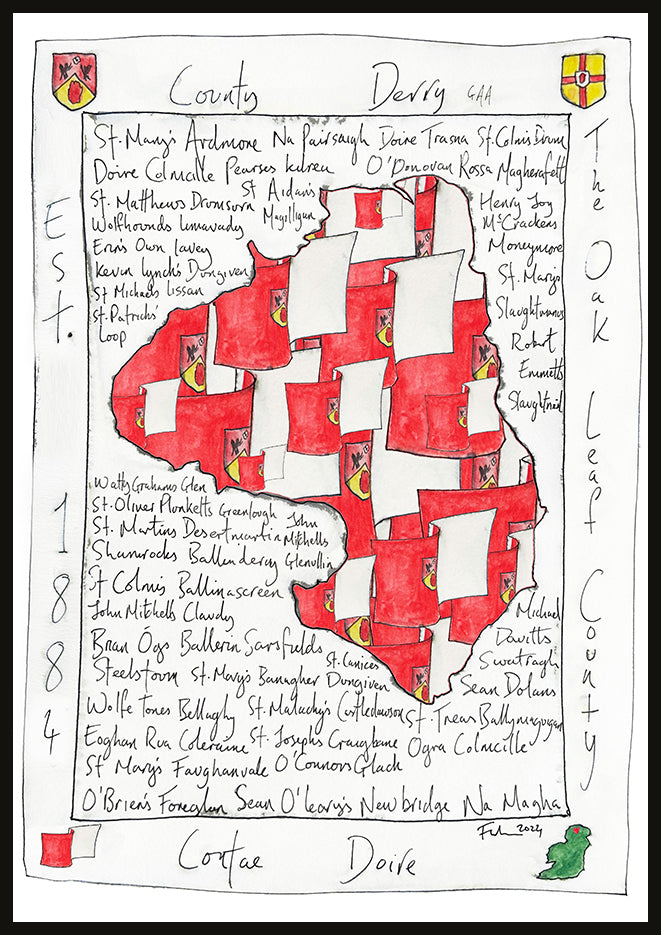 County Derry GAA
St. Mary's Ardmore Na Piarsaigh Doire Trasna St. Colm's Drum
Doire Colmcille Pearses Kilrea O'Donovan Rossa Magherafelt
St. Matthews Drumsurn
St Aidan's
Magilligan
Wolfhounds Limavady
Erin's Own Lavey
Kevin Lynch's Dungiven
St Michaels Lissan
St. Patricks'
Loop
Henry Joy
McCrackens
Moneymore
St. Marys
Slaughtmanus
Robert
Emmetts
Slaughtneil
Watty Grahams Glen
St. Oliver Plunketts Greenlough
John
Mitchells
Glenullin
St. Martins Desertmartin
Shamrocks Ballinderry
St Colms Ballinascreen
John Mitchells Claudy
Brian Ógs Ballerin Sarsfields
Steelstown St. Mary's Banagher
St. Canices
Dungiven
Michael
Davitts
Swatragh
Sean Dolans
Wolfe Tones Bellaghy St. Malachy's Castledawson St. Treas Ballymaguigan
Eoghan Rua Coleraine St. Josephs Craigbane Ogra Colmcille
St Mary's Faughanvale O'Connors Glack
O'Brien's Foreglen Sean O'Leary's Newbridge Na Magha
2024
Contae Doire
Est. 1884
The Oak Leaf County